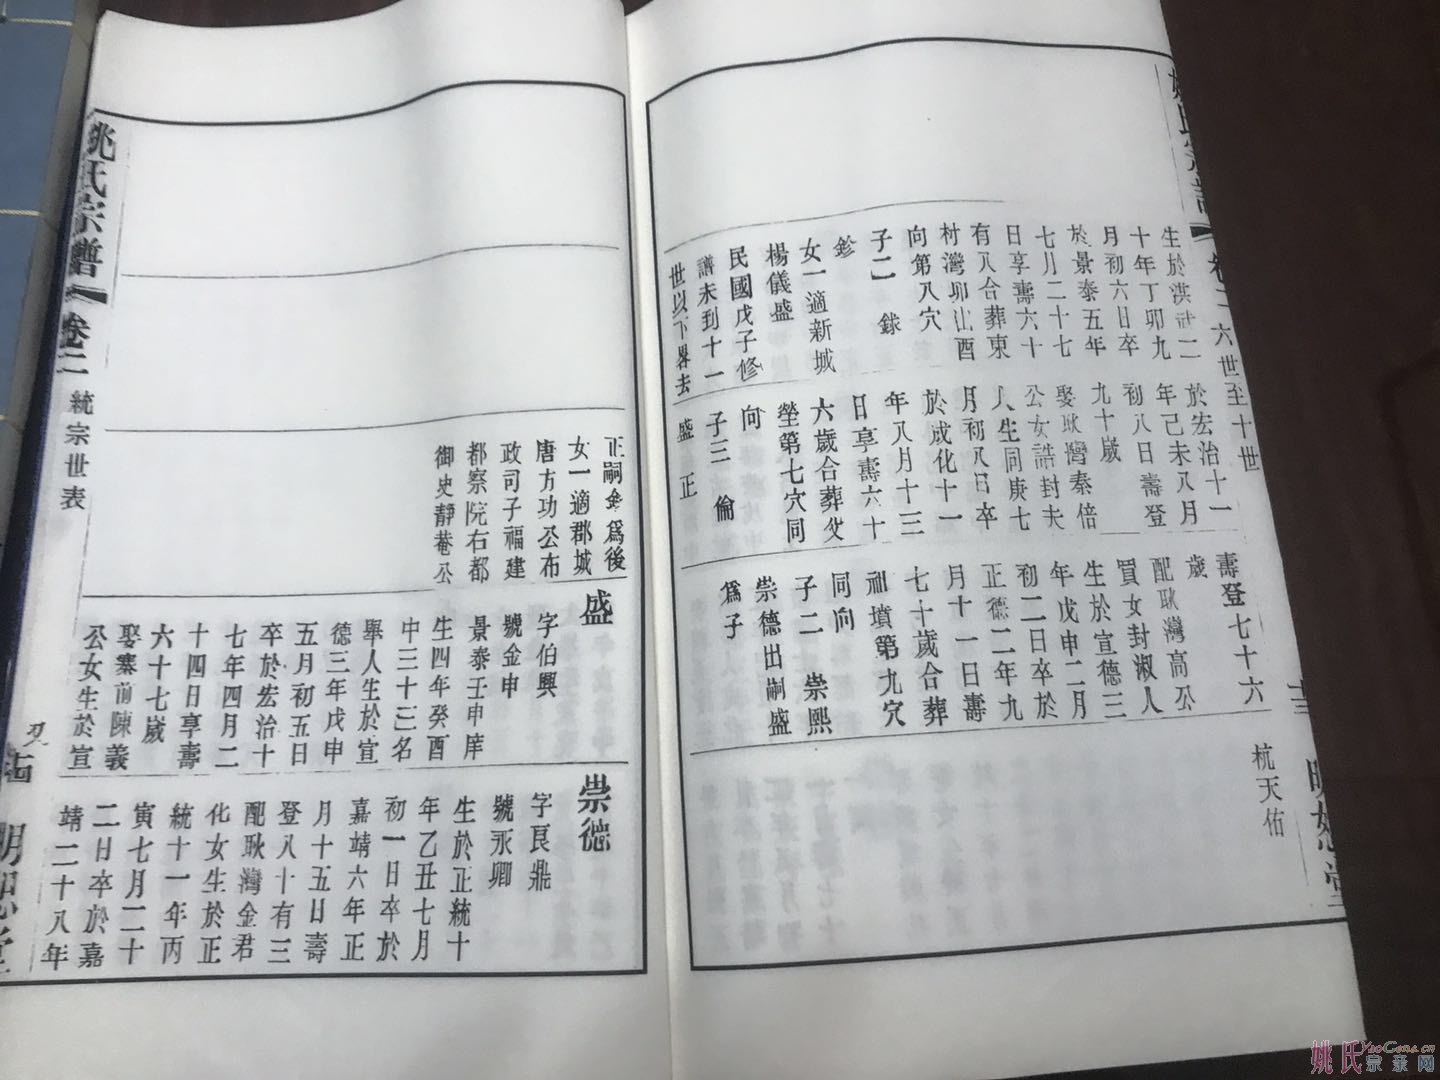 姚氏宗譜
卷二 六世至十世
十三
明恕堂
生於洪武二
十年丁卯九
月初六日卒
於景泰五年
七月二十七
日享壽六十
有八合葬東
村灣卯山酉
向第八穴
子二 銶
鉁
女一適新城
楊儀盛
民國戊子修
譜未到十一
世以下畧去
於宏治十一
年己未八月
初八日壽登
九十歲
娶耿灣秦倍
公女誥封夫
人生同庚七
月初八日卒
於成化十一
年八月十三
日享壽六十
六歲合葬父
塋第七穴同
向
子三 倫
盛 正
壽登七十六
歲
配耿灣高公
買女封淑人
生於宣德三
年戊申二月
初二日卒於
正德二年九
月十一日壽
七十歲合葬
祖墳第九穴
同向
子二 崇熙
崇德出嗣盛
爲子
杭天佑
正嗣鉁爲後
女一適郡城
唐方功公布
政司子福建
都察院右都
御史靜菴公
盛
字伯興
號金申
景泰壬申庠
生四年癸酉
中三十三名
舉人生於宣
德三年戊申
五月初五日
卒於宏治十
七年四月二
十四日享壽
六十七歲
娶寨前陳義
公女生於宣
崇德
字良鼎
號永卿
生於正統十
年乙丑七月
初一日卒於
嘉靖六年正
月十五日壽
登八十有三
配耿灣金君
化女生於正
統十一年丙
寅七月二十
二日卒於嘉
靖二十八年
姚氏宗譜
卷二 統宗世表
明恕堂
姚氏宗亲网
YaoGens.cn